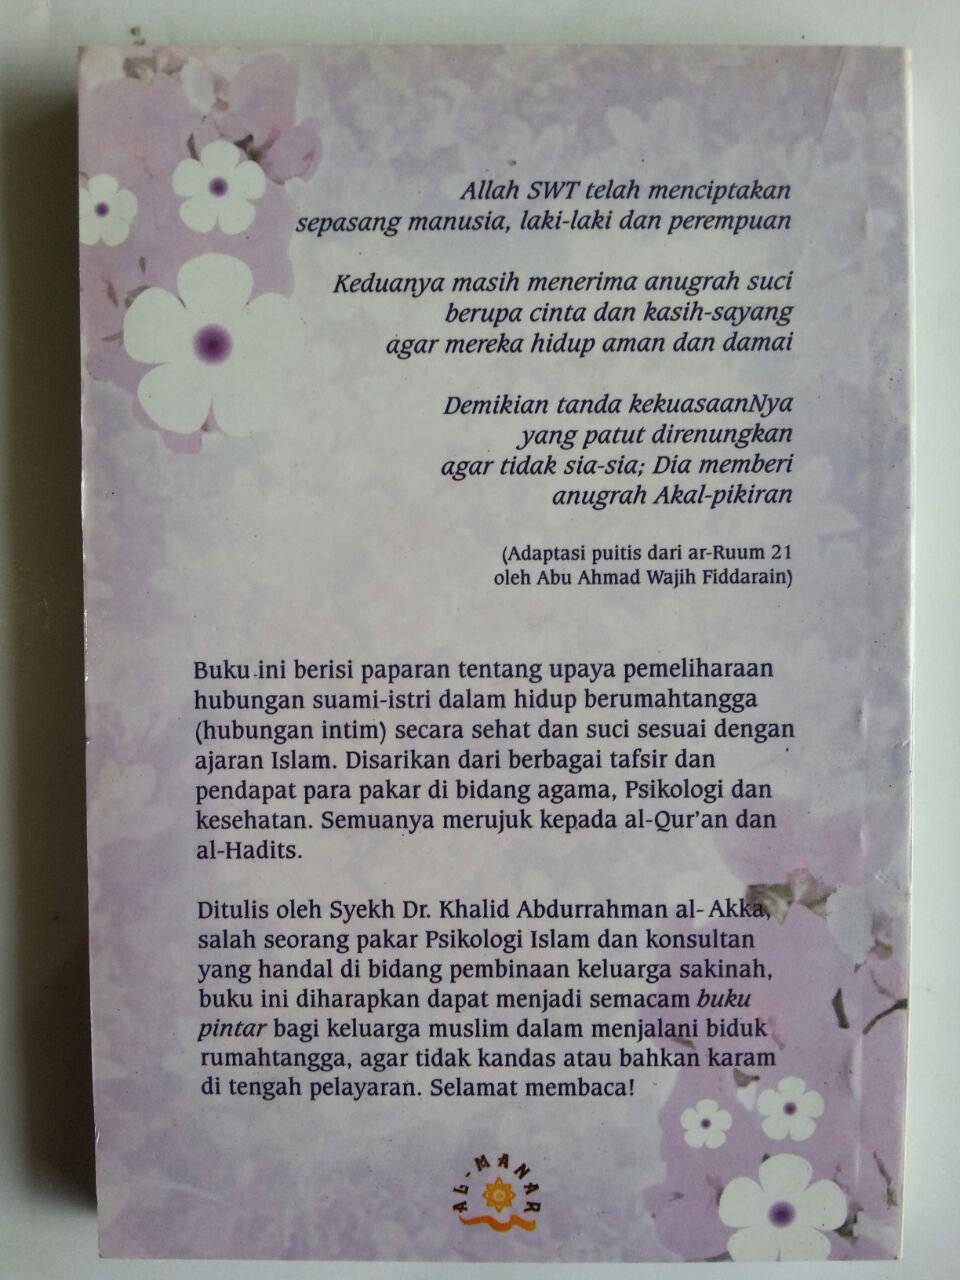 Allah SWT telah menciptakan
sepasang manusia, laki-laki dan perempuan
Keduanya masih menerima anugrah suci
berupa cinta dan kasih-sayang
agar mereka hidup aman dan damai
Demikian tanda kekuasaanNya
yang patut direnungkan
agar tidak sia-sia; Dia memberi
anugrah Akal-pikiran
(Adaptasi puitis dari ar-Ruum 21
oleh Abu Ahmad Wajih Fiddarain)
Buku ini berisi paparan tentang upaya pemeliharaan
hubungan suami-istri dalam hidup berumahtangga
(hubungan intim) secara sehat dan suci sesuai dengan
ajaran Islam. Disarikan dari berbagai tafsir dan
pendapat para pakar di bidang agama, Psikologi dan
kesehatan. Semuanya merujuk kepada al-Qur'an dan
al-Hadits.
Ditulis oleh Syekh Dr. Khalid Abdurrahman al- Akka,
salah seorang pakar Psikologi Islam dan konsultan
yang handal di bidang pembinaan keluarga sakinah,
buku ini diharapkan dapat menjadi semacam buku
pintar bagi keluarga muslim dalam menjalani biduk
rumahtangga, agar tidak kandas atau bahkan karam
di tengah pelayaran. Selamat membaca!
AL-MANAR